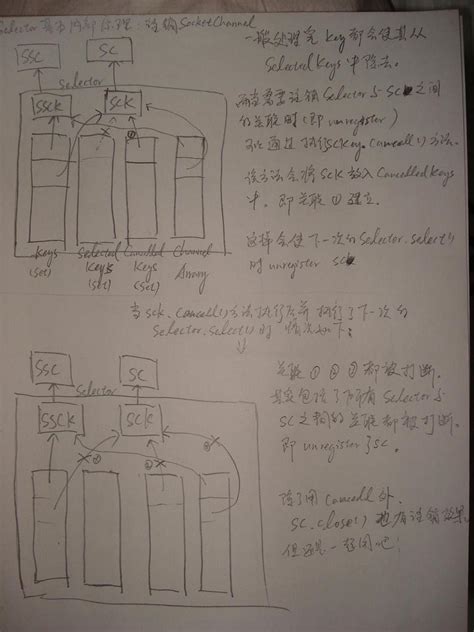 Selector基本内部原理:注销SocketChannel
SSC
SC
Selector
SSCK
SCK
Keys
(Set)
Selected
Keys
(Set)
Cancelled
Keys
(Set)
Channel
Array
一般处理完key都会使其从
Selected Keys中除去。
而当需要注销Selector与SC之间
的关联时(即unregister)
可以通过执行SCKey.Cancel()方法。
该方法会将SCK放入Cancelled Keys
中。即关联①建立。
这样会使下一次的Selector.select()
时unregister SC
当SCK.Cancel()方法执行后并执行了下一次的
Selector.select()时情况如下:
SSC
SC
Selector
SSCK
SCK
关联①②③都被打断。
SC之间的关联都被打断。
即unregister了SC。
除了用Cancel外
SC.close()也有注销效果。
但还是一起用吧!